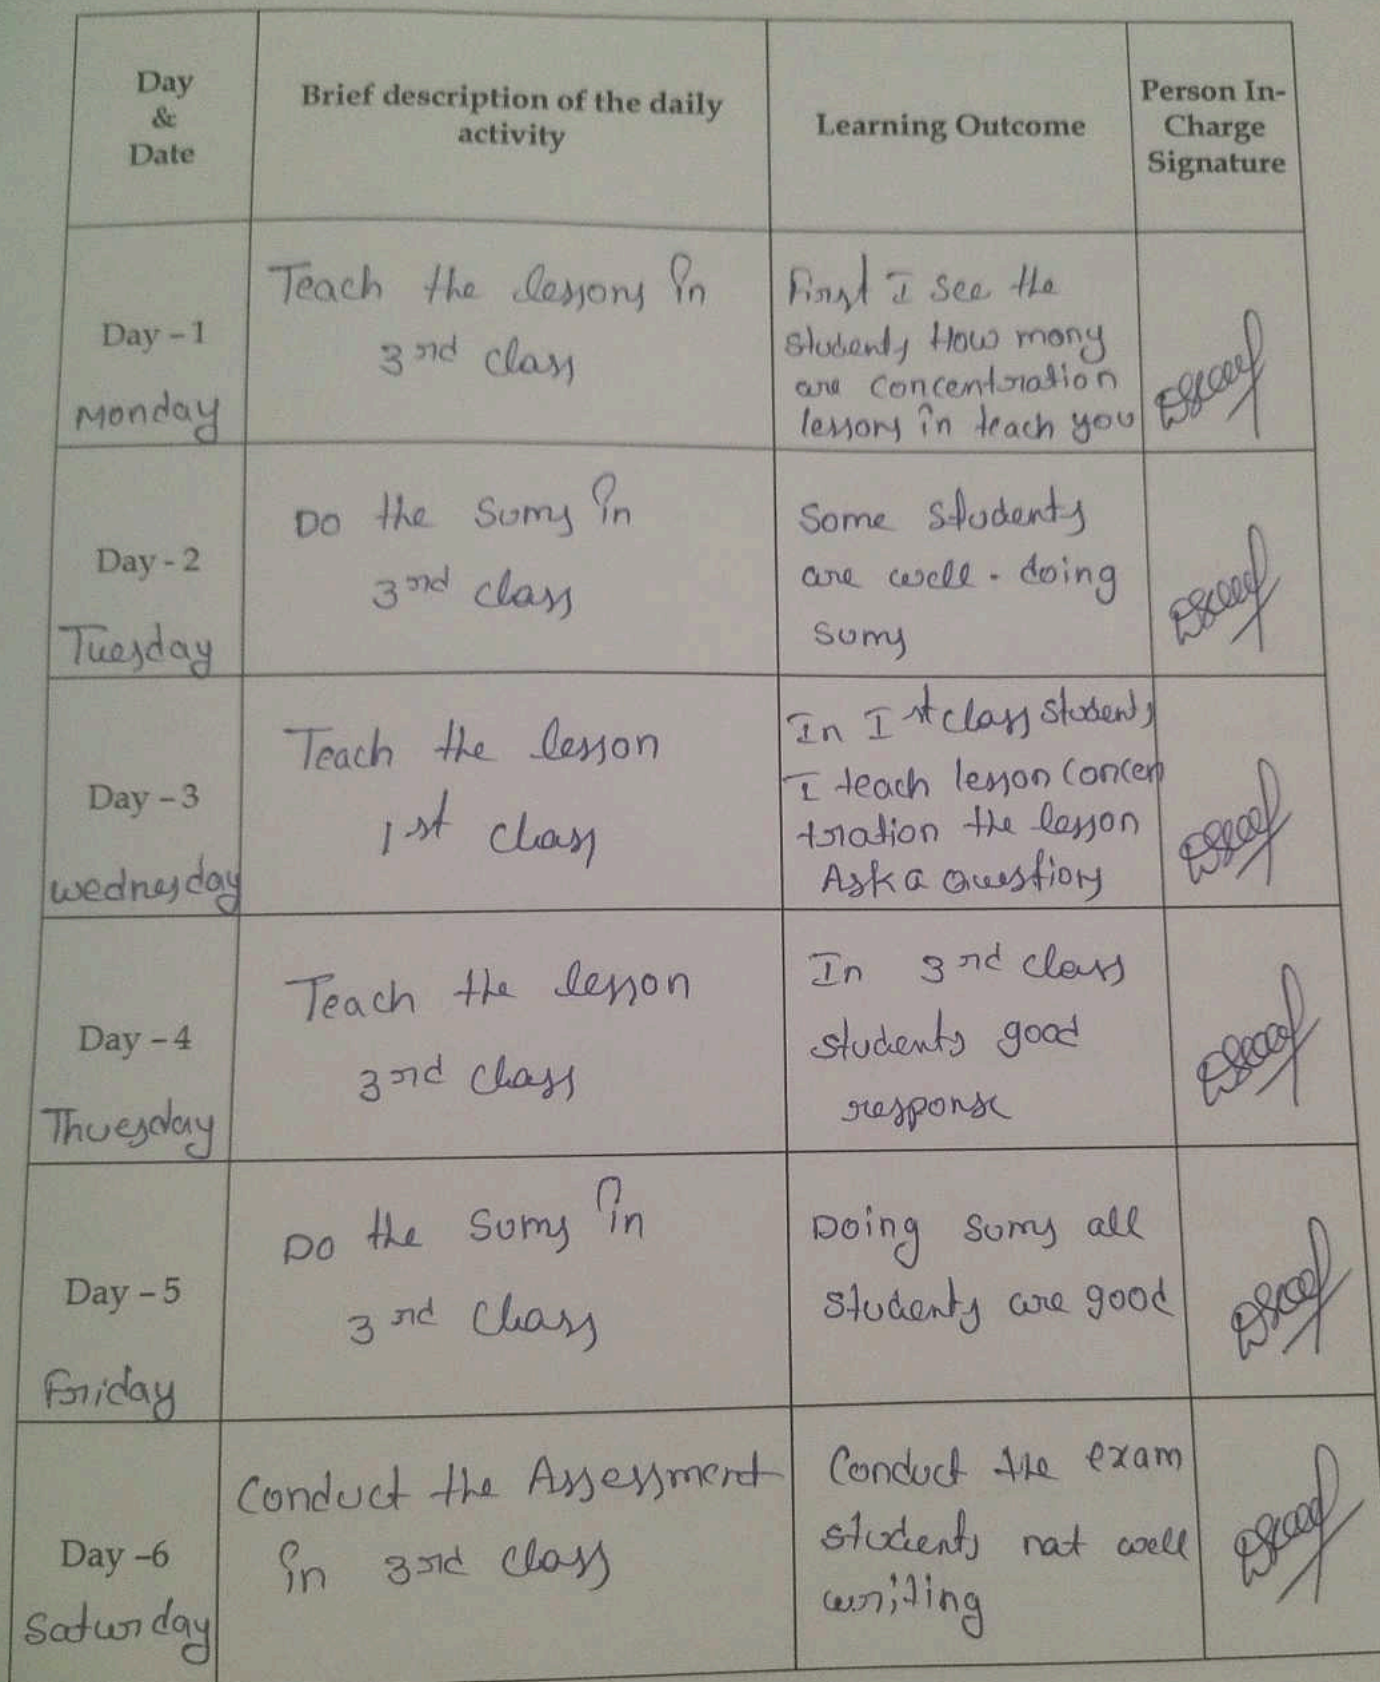 Day
&
Date
Brief description of the daily
activity
Learning Outcome
Person In-
Charge
Signature
Day - 1
Monday
Teach the lessons in
3rd class
First I see the
students How many
are concentration
lessons in teach you
Day - 2
Tuesday
Do the Sums in
3rd class
Some students
are well - doing
sums
Day - 3
wednesday
Teach the lesson
1st class
In Ist class students
I teach lesson concen
tration the lesson
Ask a Questions
Day - 4
Thuesday
Teach the lesson
3rd class
In 3rd class
students good
response
Day - 5
Friday
Do the Sums in
3rd class
Doing sums all
students are good
Day -6
Saturday
Conduct the Assessment
in 3rd class
Conduct the exam
students nat well
writing